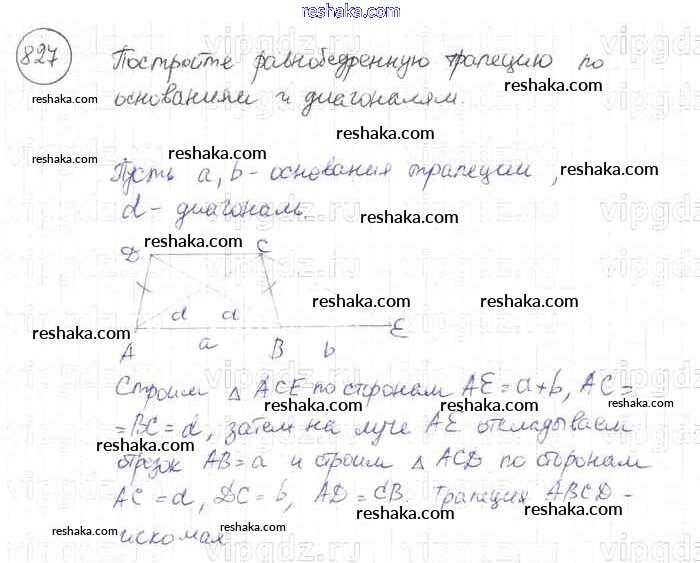 reshaka.com
827 Постройте равнобедренную трапецию по
reshaka.com reshaka.com
основаниям и диагоналям.
reshaka.com
reshaka.com reshaka.com
Пусть a, b - основания трапеции, reshaka.com
d - диагональ.
reshaka.com
reshaka.com
D C
reshaka.com reshaka.com
d d
reshaka.com
A a B b E
Строим △ ACE по сторонам AE = a+b, AC =
reshaka.com reshaka.com reshaka.com
= BC = d, затем на луче AE откладываем
reshaka.com
отрезок AB = a и строим △ ACD по сторонам
reshaka.com
AC = d, DC = b, AD = CB. Трапеция ABCD -
reshaka.com reshaka.com reshaka.com
искомая
reshaka.com reshaka.com reshaka.com
vipgdz.ru vipgdz.ru vipgdz.ru